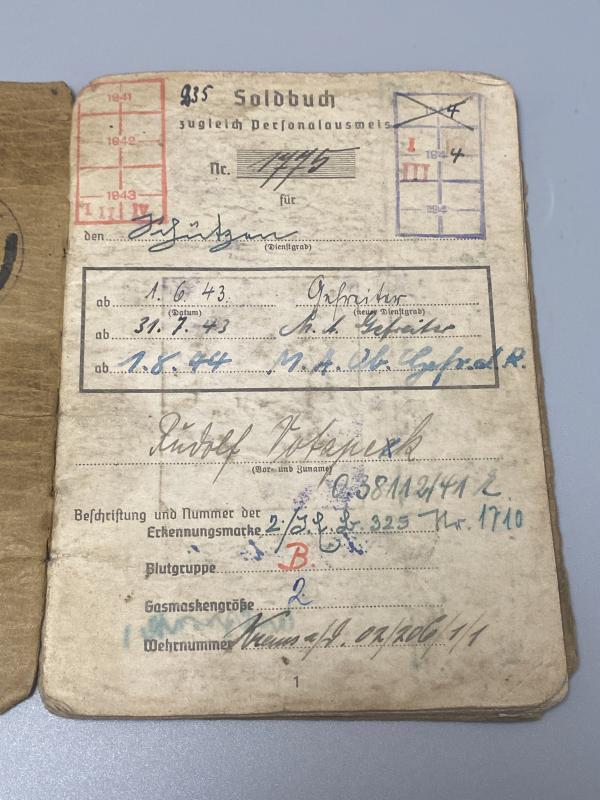 1941
1942
1943
IV III II I
235 Soldbuch
zugleich Personalausweis
4
I 194 4
III
194
Nr. 1775
für
den Schützen
(Dienstgrad)
ab 1.6.43. Gefreiter
(Datum) (neuer Dienstgrad)
ab 31.7.43 M.A. Gefreiter
ab 1.8.44 M.A. Ob. Gefr.
Rudolf
(Vor- und Zuname)
38112/41
Beschriftung und Nummer der
Erkennungsmarke 2/J.E. 325 Nr. 1710
Blutgruppe B.
Gasmaskengröße 2
Wehrnummer Krems a/d. 02/206/1/1
1